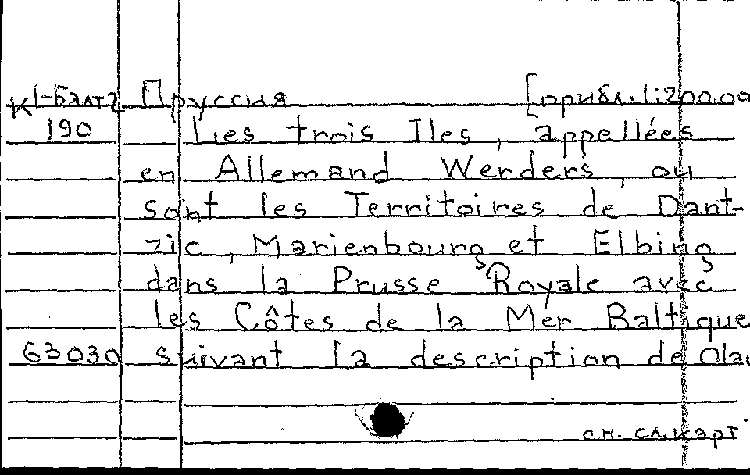 К1-Балт2 Пруссия [прибл.1:200.00
190 Les trois Iles, appellées
en Allemand Werders, ou
sont les Territoires de Dant-
zic, Marienbourg et Elbing
dans la Prusse Royale avec
les Côtes de la Mer Baltique
63030 suivant la description de Olau
см. сл. карт.